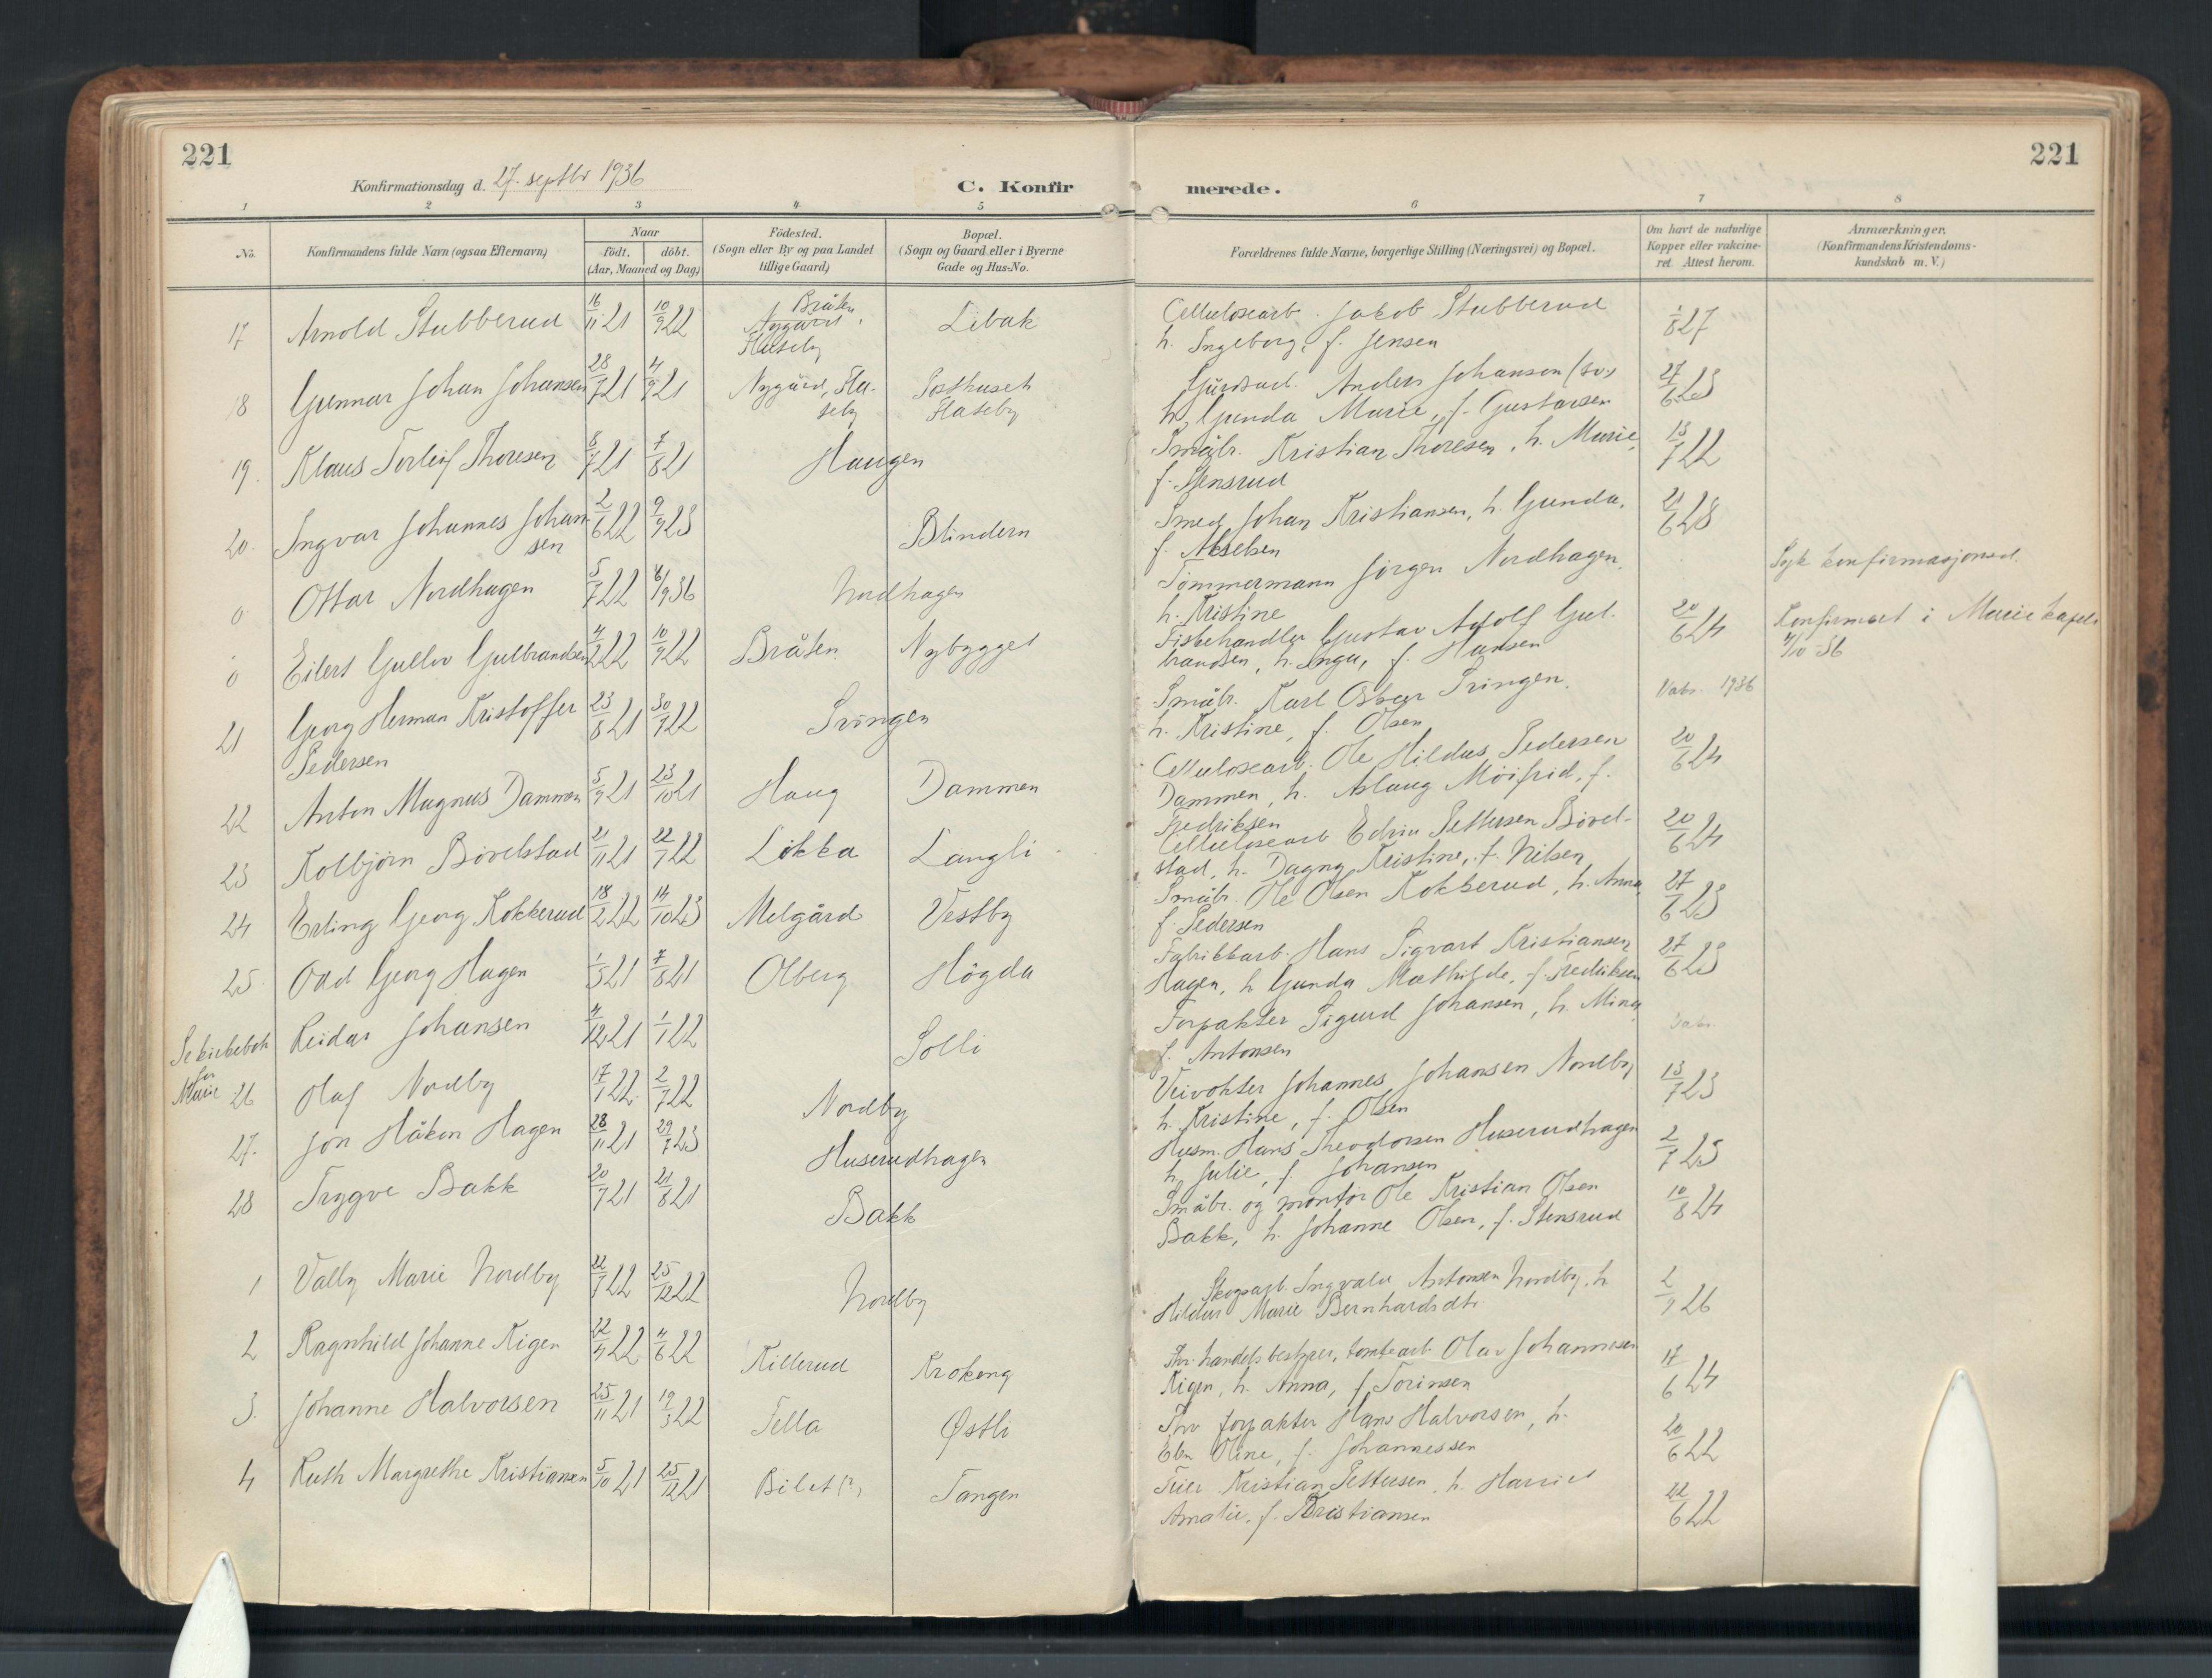 221
221
Konfirmationsdag d. 27. septbr 1936
C. Konfir merede.
1 2 3 4 5 6 7 8
No.
Konfirmandens fulde Navn (ogsaa Efternavn)
Naar
født. døbt.
(Aar, Maaned og Dag)
Fødested.
(Sogn eller By og paa Landet
tillige Gaard)
Bopæl.
(Sogn og Gaard eller i Byerne
Gade og Hus-No.
Forældrenes fulde Navne, borgerlige Stilling (Næringsvei) og Bopæl.
Om havt de naturlige
Kopper eller vakcine-
ret. Attest herom.
Anmærkninger.
(Konfirmandens Kristendoms-
kundskab m. V.)
17 Arnold Stubberud 16/11 21 10/9 22 Bråten Nygård, Haseby Libak Cellulosearb. Jakob Stubberud
h. Ingeborg, f. Jensen 1/8 27
18 Gunnar Johan Johansen 28/7 21 4/9 21 Nygård, Ha-
seby Posthuset
Haseby Gårdsarb. Anders Johansen
h. Gunda Marie, f. Gustavsen 27/6 23
19. Klaus Torleif Thoresen 8/7 21 7/8 21 Haugen Småbr. Kristian Thoresen, h. Marie,
f. Stensrud 13/7 22
20. Ingvar Johannes Johan-
sen 2/6 22 9/9 23 Blindern Smed Johan Kristiansen, h. Gunda,
f. Akselsen 21/6 28
0 Ottar Nordhagen 5/7 22 6/9 36 Nordhagen Tømmermann Jørgen Nordhagen,
h. Kristine Syk konfirmasjonsd.
0 Eilert Gullov Gulbrandsen 4/2 22 10/9 22 Bråten Nybygget Fiskehandler Gustav Adolf Gul-
brandsen, h. Inga, f. Hansen 20/6 24 Konfirmert i Marie kapel
4/10 36
21 Georg Herman Kristoffer
Pedersen 23/8 21 30/7 22 Svingen Småbr. Karl Oskar Svingen,
h. Kristine, f. Olsen Vaks. 1936
22 Anton Magnus Dammen 5/9 21 23/10 21 Haug Dammen Cellulosearb. Ole Hildus Pedersen
Dammen, h. Aslaug Möifrid, f.
Fredriksen 20/6 24
23 Kolbjørn Bövelstad 21/11 21 22/7 22 Løkka Langli Cellulosearb Edvin Pettersen Bövel-
stad, h. Dagny Kristine, f. Nilsen 20/6 24
24 Erling Georg Kokkerud 18/2 22 14/10 23 Melgård Vestby Småbr. Ole Olsen Kokkerud, h. Anna,
f. Pedersen 27/6 23
25 Odd Georg Hagen 1/3 21 7/8 21 Olberg Högda Fabrikkarb. Hans Sigvart Kristiansen
Hagen, h Gunda Mathilde, f. Fredriksen 27/6 23
Se kirkebok
for
Marie Reidar Johansen 4/12 21 1/1 22 Solli Forpakter Sigurd Johansen, h. Mina,
f. Antonsen Vaks.
26 Olaf Nordby 17/1 22 2/7 22 Nordby Veivokter Johannes Johansen Nordby
h. Kristine, f. Olsen 13/7 23
27. Jon Håkon Hagen 28/11 21 29/7 23 Huserudhagen Husm. Hans Theodorsen Huserudhagen
h. Julie, f. Johansen 2/7 25
28 Trygve Bakk 20/7 21 21/8 21 Bakk Småbr. og montör Ole Kristian Olsen
Bakk, h. Johanne Olsen, f. Stensrud 10/8 24
1 Vally Marie Nordby 22/7 22 25/12 22 Nordby Skogsarb. Ingvald Antonsen Nordby, h.
Hildur Marie Bernhardsdtr. 2/7 26
2 Ragnhild Johanne Kigen 22/4 22 4/6 22 Killerud Krokeng Fhv. handelsbestyrer, tomtearb. Olav Johannesen
Kigen, h. Anna, f. Torinsen 17/6 24
3. Johanne Halvorsen 25/11 21 19/3 22 Tella Østli Fhv forpakter Hans Halvorsen, h.
Elen Oline, f. Johannessen 20/6 22
4 Ruth Margrethe Kristiansen 5/10 21 25/12 21 Bilet (?) Tangen Kristian Pettersen, h. Harriet
Amalie, f. Kristiansen 22/6 22